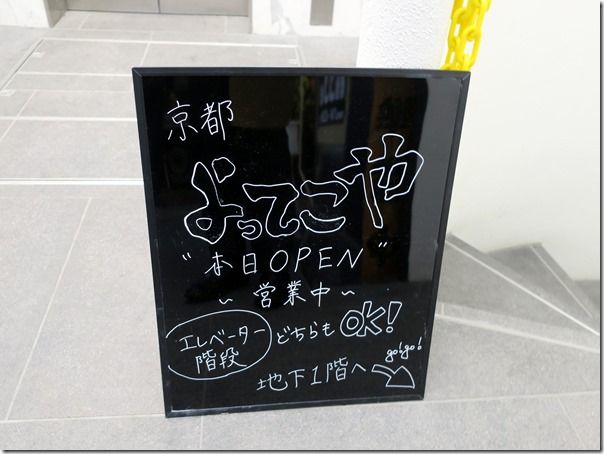 京都
よってこや
"本日OPEN"
～営業中～
エレベーター
階段
どちらもOK!
go!go!
地下1階へ